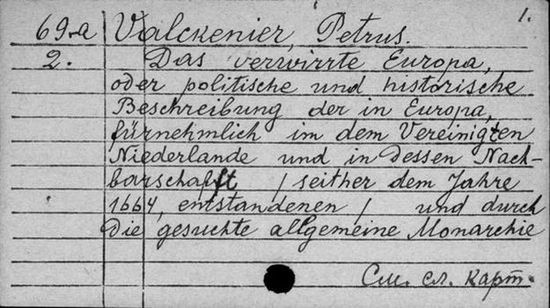 1.
69-a Valckenier, Petrus.
2. Das verwirrte Europa,
oder politische und historische
Beschreibung der in Europa,
fürnehmlich in dem Vereinigten
Niederlande und in dessen Nach-
barschafft, / seither dem Jahre
1664, entstandenen / und durch
die gesuchte allgemeine Monarchie
См. сл. карт.